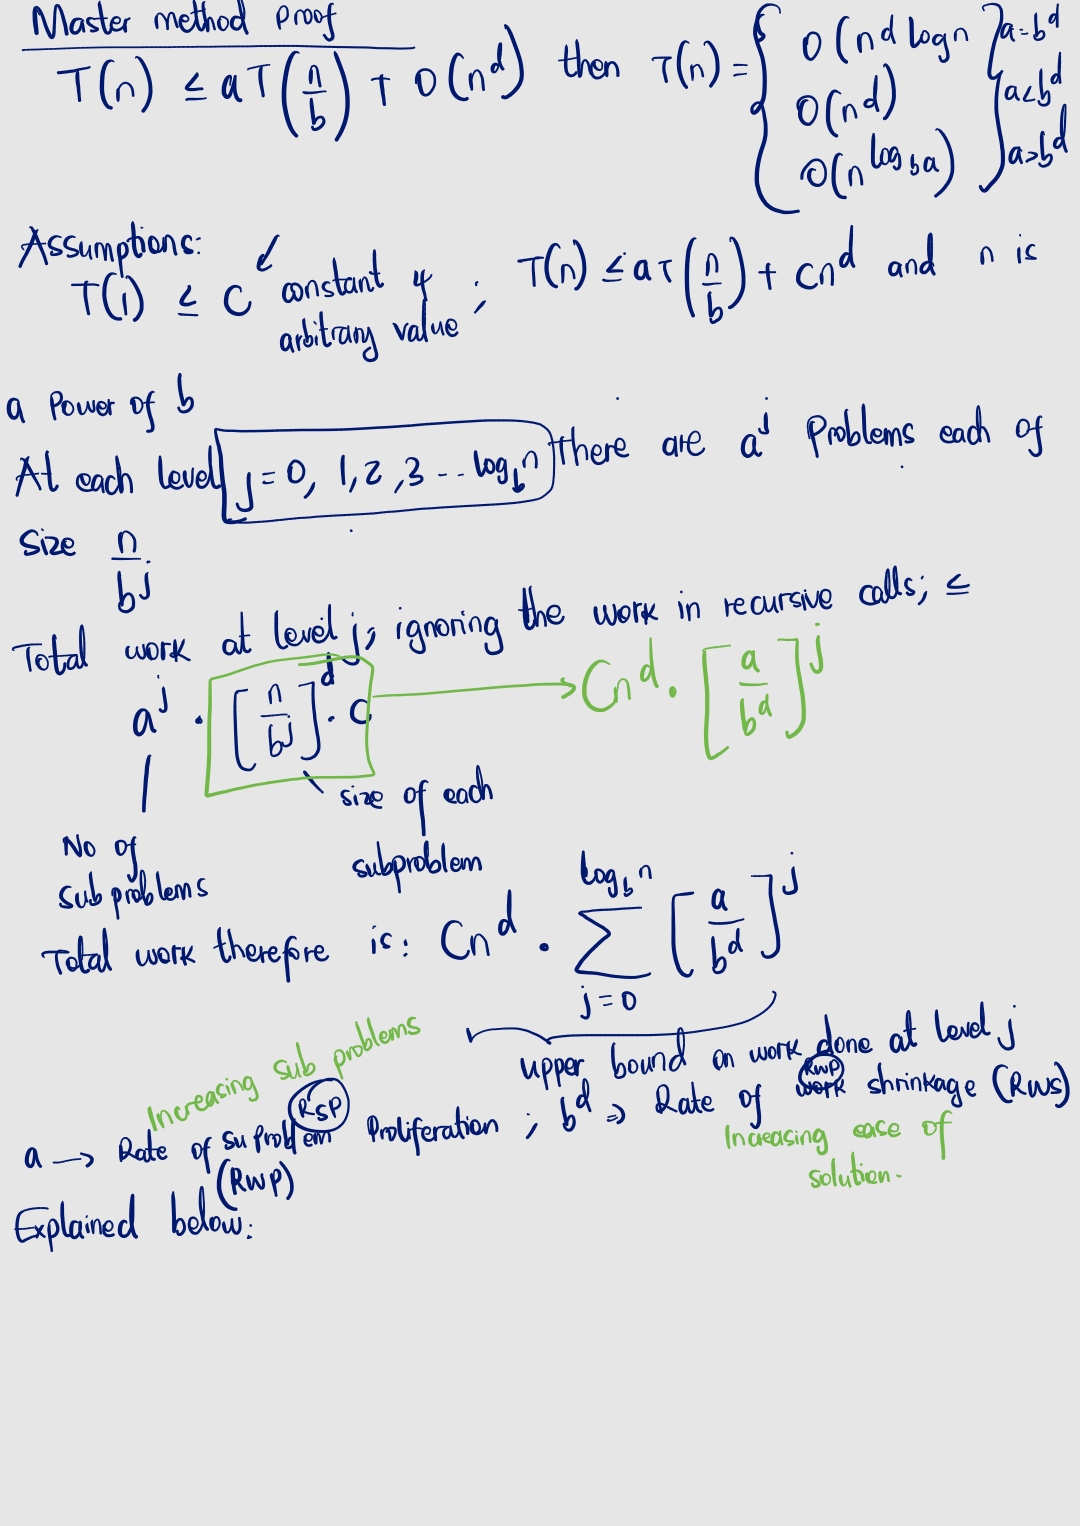 Master method proof
T(n) ≤ aT(n/b) + O(n^d) then T(n) = { O(n^d log n } a=b^d
O(n^d) } a<b^d
O(n^log_b a) } a>b^d
Assumptions:
T(1) ≤ C ↙ constant & arbitrary value ; T(n) ≤ aT(n/b) + cn^d and n is
a Power of b
At each level j = 0, 1, 2, 3 -- log_b n There are a^j Problems each of
Size n/b^j
Total work at level j, ignoring the work in recursive calls; ≤
a^j · [n/b^j]^d · c → Cn^d · [a/b^d]^j
size of each
subproblem
No of
sub problems
Total work therefore is: Cn^d · ∑_{j=0}^{log_b n} [a/b^d]^j
upper bound on work done at level j
Increasing sub problems
a → Rate of suproblem Proliferation ; b^d ⇒ Rate of work shrinkage (RWS)
RSP
RWP
(RWP)
Increasing ease of
solution.
Explained below: